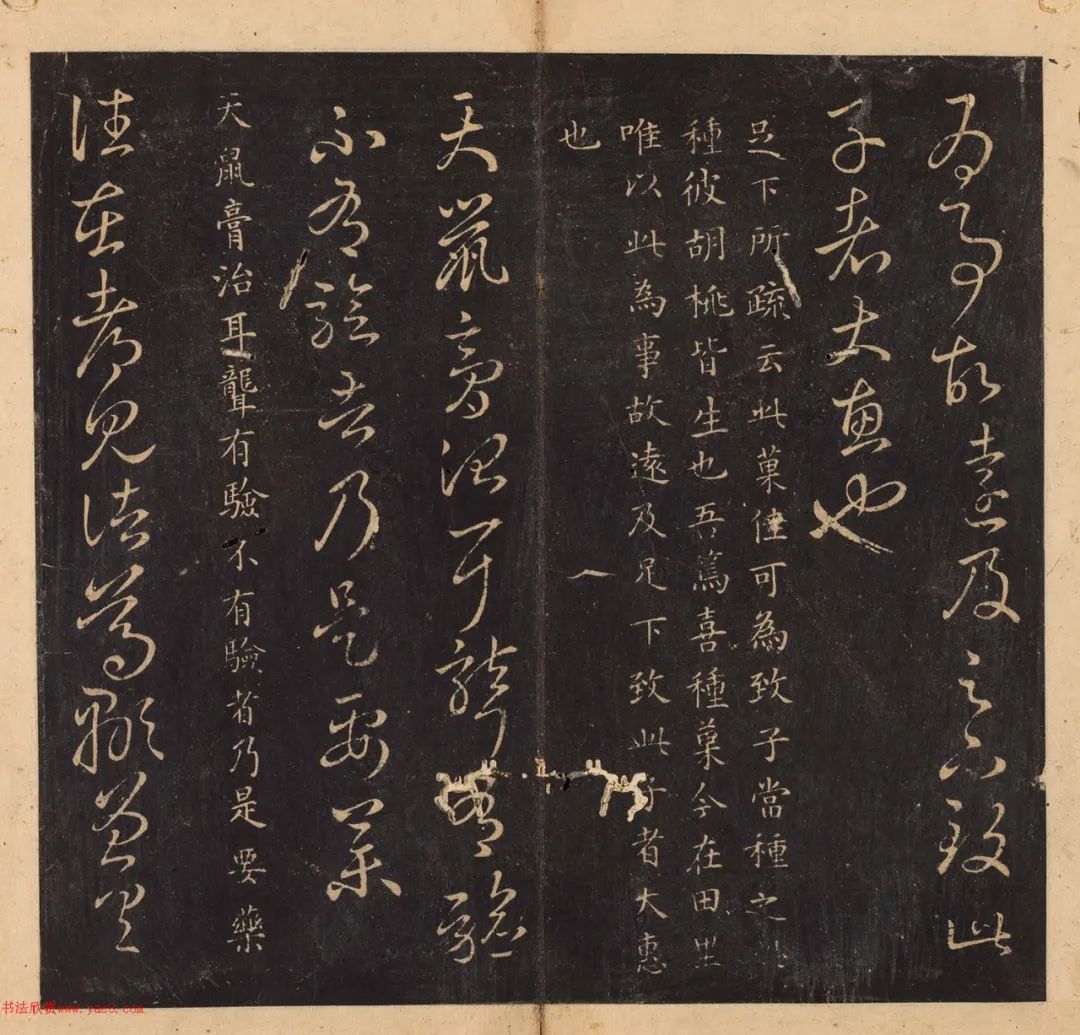 為事故遠及足下致此
子者大惠也
足下所疏云此菓佳可為致子當種之
種彼胡桃皆生也吾篤喜種菓今在田里
唯以此為事故遠及足下致此子者大惠
也
天鼠膏治耳聾有驗
不有驗者乃是要藥
天鼠膏治耳聾有驗不有驗者乃是要藥
往在都見諸葛顒曾具
书法欣赏www.yac8.com